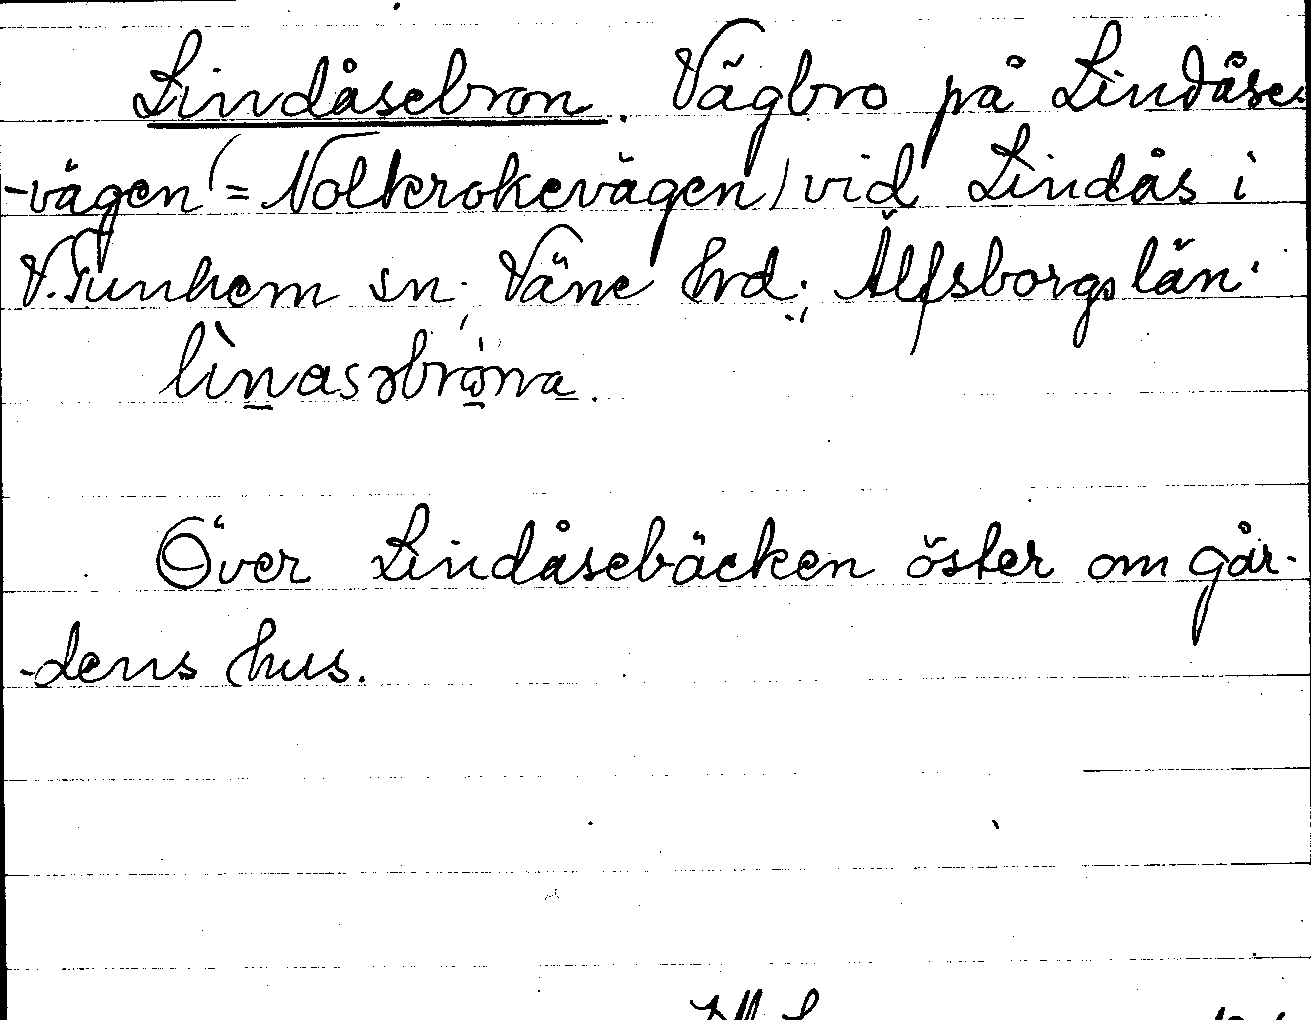 Lindåsebron. Vägbro på Lindåse-
-vägen (= Nolkrokevägen) vid Lindås i
V. Tunhem sn; Väne hrd; Älfsborgs län.
lìnasəbrona.
Över Lindåsebäcken öster om går-
-dens hus.